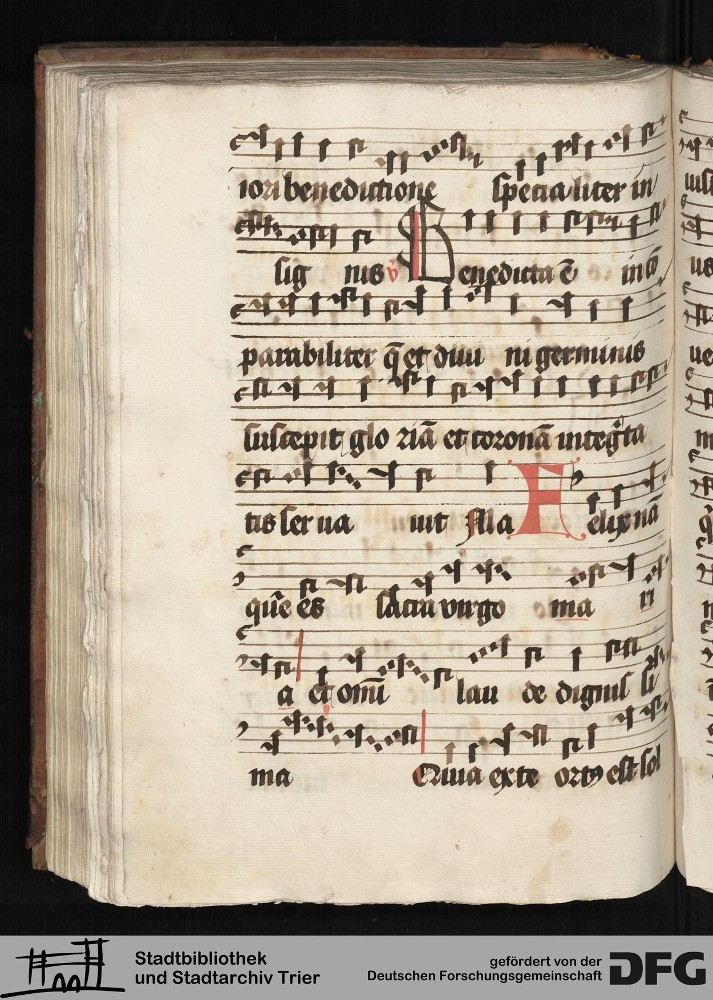 iori benedictione specialiter in
sig nis v̕ Benedicta ē in cō
parabiliter q̄ et diui ni germinis
suscepit glo riā et coronā integ̕ta
tis ser ua uit Illa Felix nā
que es sacra virgo ma ri
a et om̄i lau de digniss si
ma Quia ex te ort9 est sol
Stadtbibliothek
und Stadtarchiv Trier
gefördert von der
Deutschen Forschungsgemeinschaft
DFG